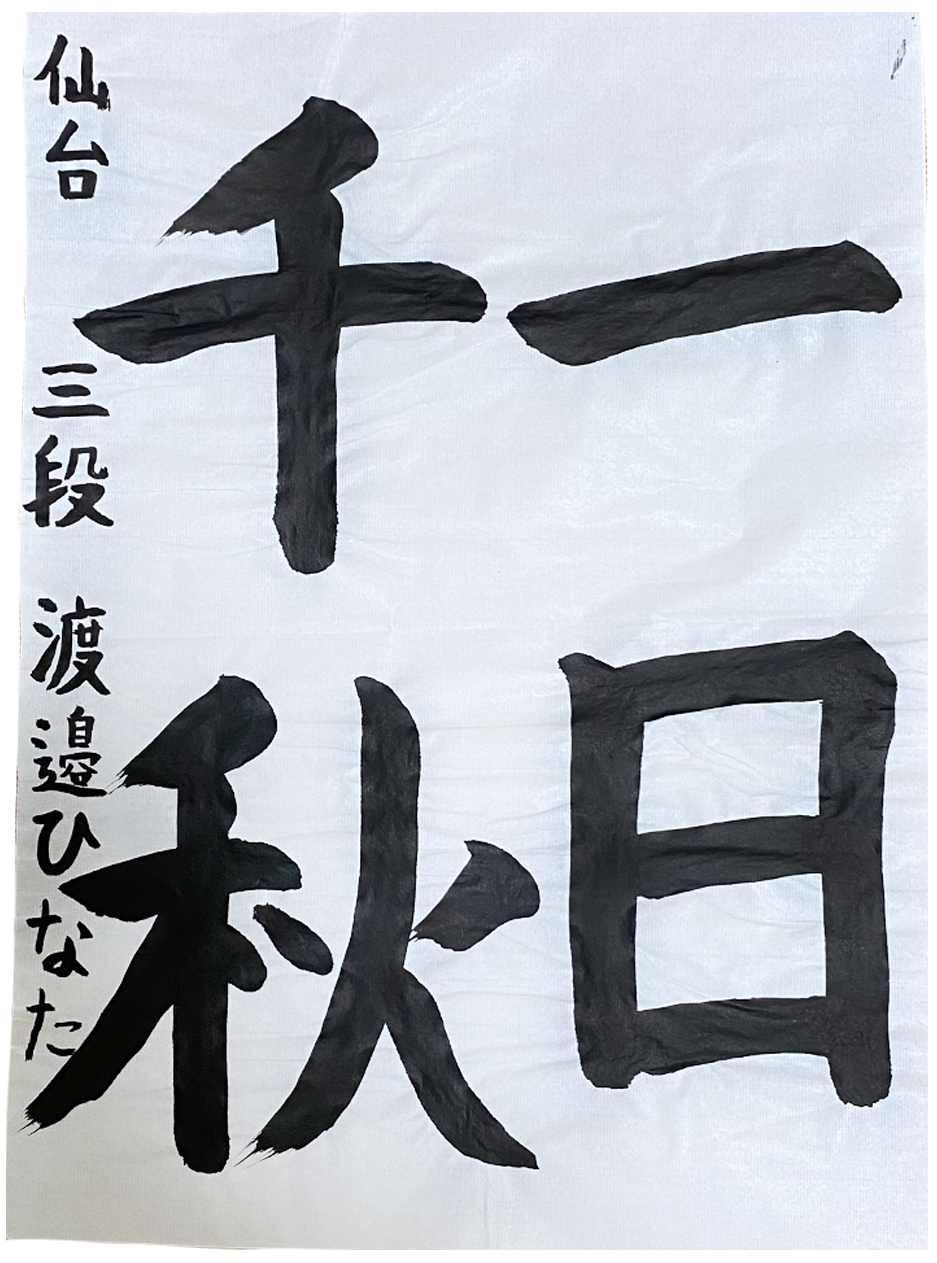 一日
千秋
仙台 三段 渡邉ひなた